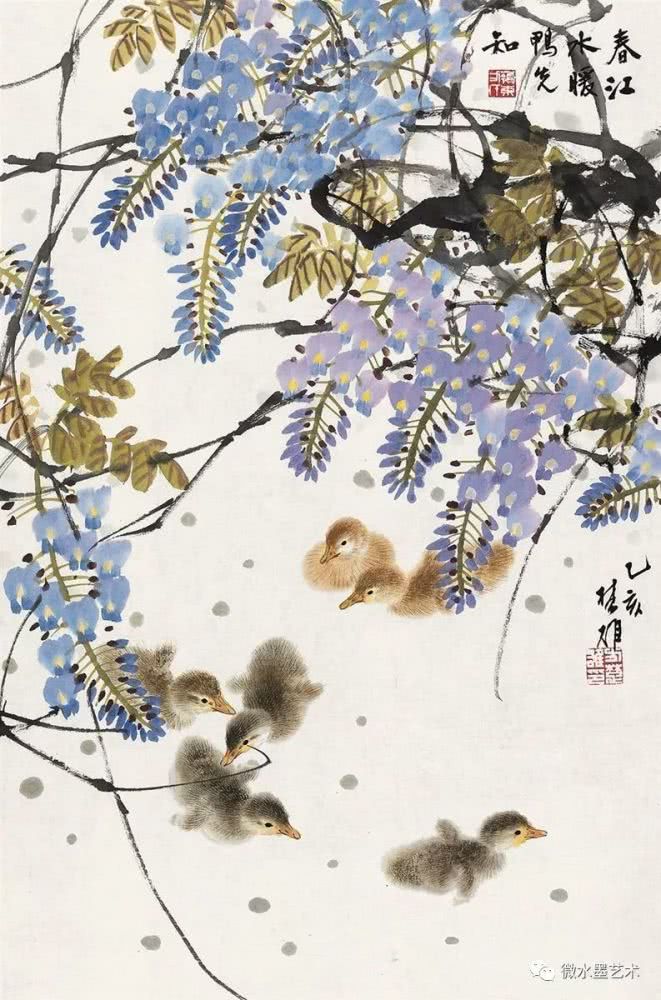 春江
水暖
鸭先
知
乙亥
桂雄
微水墨艺术